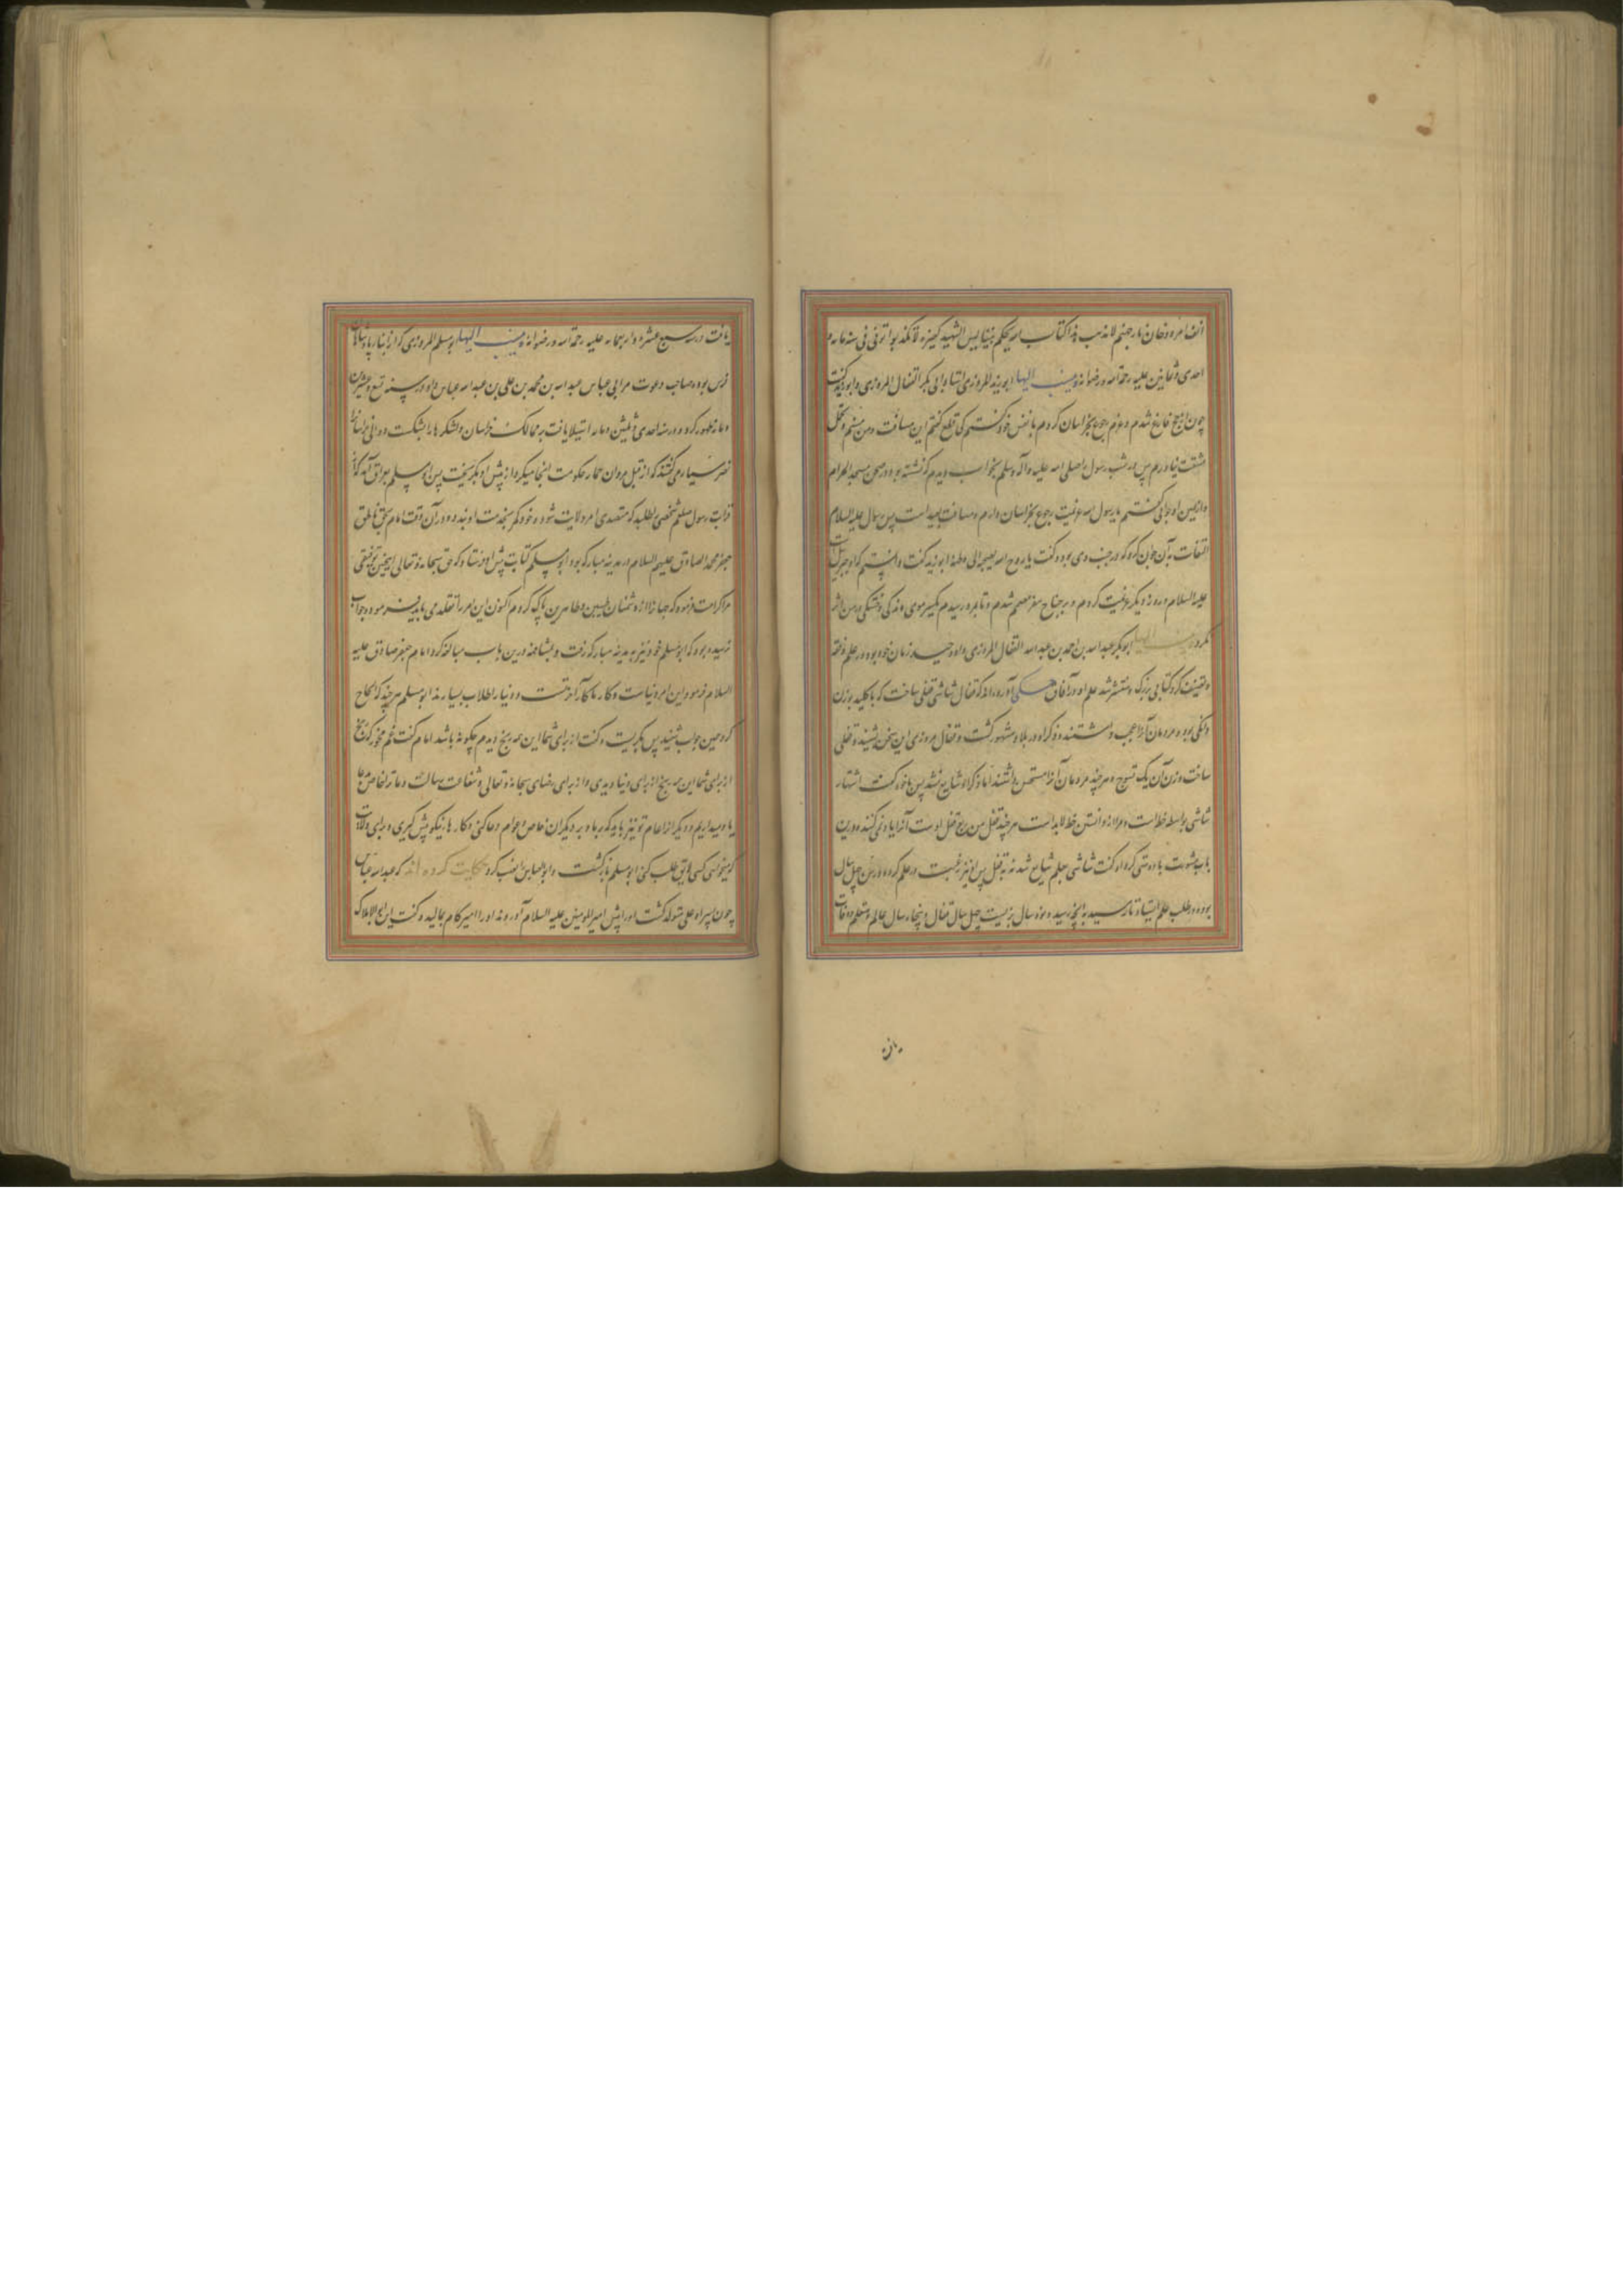 احدی و ثمانین علیه رحمة الله و رضوانه وینسب الیها ابو زید المروزی استاد ابی بکر القفال المروزی و ابو زید گفت
چون از حج فارغ شدم و عزم رجوع بخراسان کردم با نفس خود گفتم کی قطع کنم این مسافت و من مسنم و تحمل
مشقت ندارم پس در شب رسول را صلی الله علیه و آله و سلم بخواب دیدم که نشسته بود در صحن مسجد الحرام
و از یمین او جوانی گفتم یا رسول الله عزیمت رجوع بخراسان دارم و مسافت بعید است پس رسول علیه السلام
التفات به آن جوان کرد که در جنب وی بود و گفت یا روح الله یصحبه الی وطنه ابو زید گفت دانستم که او جبریل است
علیه السلام و روز دیگر عزیمت کردم و بر جناح سفر مصمم شدم و تا بمرو رسیدم یکسر موی ماندگی و خستگی در من اثر
نکرد وینسب الیها ابو بکر عبد الله بن احمد بن عبد الله القفال المروزی و او وحید زمان خود بود در علم و فقه
و تصنیف کرد کتابی بزرگ و منتشر شد علم او در آفاق حکی آورده اند که قفال شاشی قفلی ساخت که با کلید بوزن
دانگی بود و مردمان آنرا عجب داشتند و ذکر او در بلاد مشهور گشت و قفال مروزی این سخن شنید و قفلی
ساخت وزن آن یک تسوج و هر چند مردمان آنرا مستحسن داشتند اما ذکر او شایع نشد پس با خود گفت اشتهار
شاشی بواسطه خط است و مرا از دانستن خط لابد است هر چند قفل من ربع قفل اوست آنرا یاد نمی کنند و درین
باب مشورت با دوستی کرد او گفت شاشی بعلم شایع شد نه به قفل پس او نیز رغبت در علم کرد و در سن چهل سال
بود و در طلب علم ایستاد تا رسید به آنچه رسید و نود سال بزیست چهل سال قفال و پنجاه سال عالم و متعلم و وفات
یافت
یافت در سنه سبع عشره و اربعمایه علیه رحمة الله و رضوانه وینسب الیها ابو مسلم المروزی که از ابنای پادشاهان
فرس بود و صاحب دعوت مر ابی عباس عبد الله بن محمد بن علی بن عبد الله عباس و او در سنه تسع و عشرین
و مایه ظهور کرد و در سنه احدی و ثلثین و مایه استیلا یافت به ممالک خراسان و لشکرها را بشکست و والی خراسان را
نصر سیار می گفتند که از قبل مروان حمار حکومت آنجا میکرد از پیش او بگریخت پس ابو مسلم بعراق آمد که از
قرابت رسول صلعم شخصی را طلبد که متصدی امر ولایت شود و خود کمر بخدمت او بندد و در آن وقت امام بحق ناطق
جعفر محمد الصادق علیهم السلام در مدینه مبارکه بود ابو مسلم کتابت پیش او فرستاد که حق سبحانه و تعالی اینچنین توفیقی
مرا کرامت فرمود که جهان را از دشمنان طیبین و طاهرین پاک کردم اکنون این امر را تقلد می باید فرمود و جواب
نرسیده بود که ابو مسلم خود نیز به مدینه مبارکه رفت و بمشافهه درین باب مبالغه کرد امام جعفر صادق علیه
السلام فرمود این امر دنیاست و کار ما کار آخرتست و دنیا را طلاب بسیارند ابو مسلم هر چند که الحاح
کرد همین جواب شنید پس بگریست و گفت از برای شما این همه رنج دیدم چگونه باشد امام گفت غم مخور که رنج
از برای شما این همه رنج از برای دنیا دیدی و از برای رضای سبحانه و تعالی و شفاعت رسالت و ما ترا خاص بدعا
یاد میداریم و دیگر از اعام تو نیز باید که بر ما و بر دیگران خاص و عوام دعا کنی و کارها نیکو پیش گیری و برای ولایت
که میخواهی کسی لایق طلب کنی ابو مسلم باز گشت و ابو العباس را نصب کرد حکایت کرده اند که عبد الله عباس
چون پسر او علی متولد گشت او را پیش امیر المومنین علیه السلام آوردند او را امیر کام بمالید و گفت این ابو الاملاک